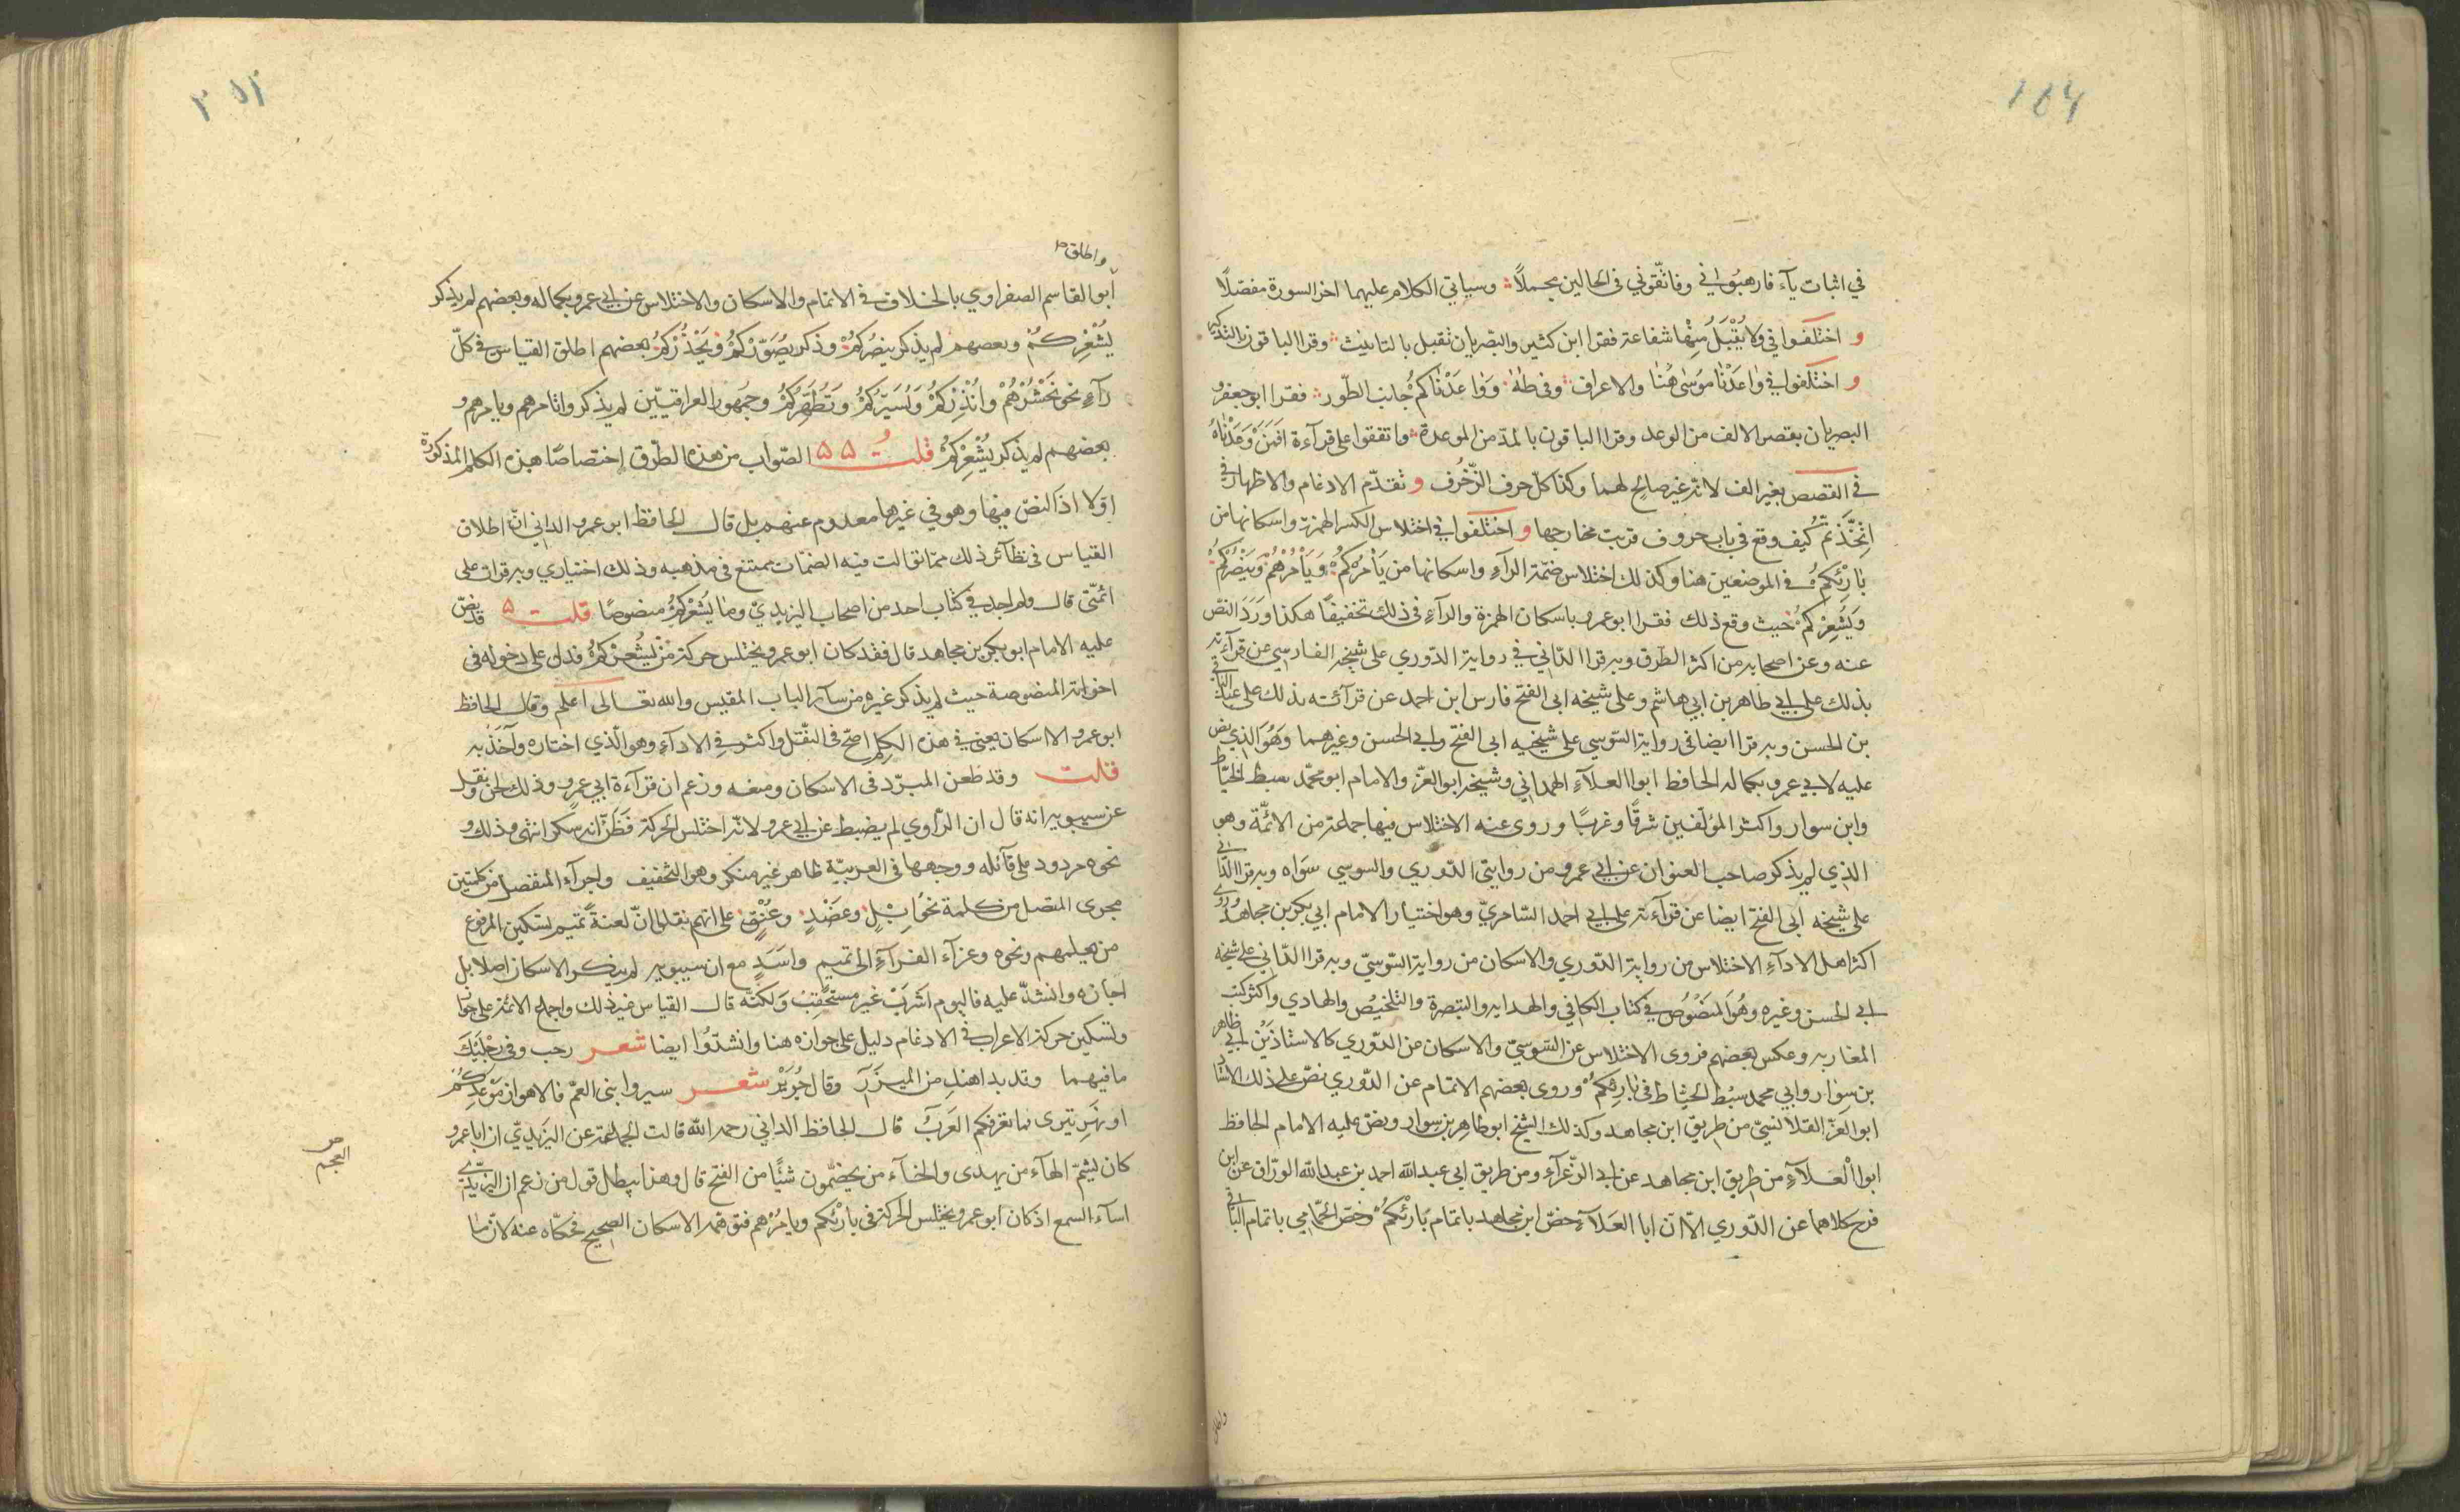 104
في اثبات يآء فارهبوني وفاتّقوني في الحالين مجملاً وسياتي الكلام عليهما اخر السورة مفصّلًا
و اختلفوا في ولا يُقْبَلُ مِنْها شفاعة فقرا ابن كثير والبصريان تقبل بالتانيث وقرا الباقون بالتذكير
و اختلفوا في وٰاعَدْنٰا مُوسٰى هُنٰا والاعراف وفي طٰهٰ وَوٰاعَدْنٰاكُمْ جٰانِبَ الطّور فقرا ابو جعفر و
البصريان بقصر الالف من الوعد وقرا الباقون بالمدّ من الموعدة واتفقوا على قرآءة اَفَمَنْ وَعَدْنٰاهُ
في القصص بغير الف لانه غير صالح لهما وكذا كلّ حرف الزّخرُف و تقدّم الادغام والاظهار في
اتَّخَذْتُمْ كيف وقع في باب حروف قربت مخارجها و اختلفوا في اختلاس الكسر الهمزة واسكانها من
بٰارِئِكُمْ في الموضعين هنا وكذلك اختلاس ضمّة الرآء واسكانها من يَاْمُرُكُمْ وَيَاْمُرُهُمْ وَيَنْصُرُكُمْ
وَيُشْعِرُكُمْ حيث وقع ذلك فقرا ابو عمرو باسكان الهمزة والرآء في ذلك تخفيفًا هكذا وَرَدَ النصّ
عنه وعن اصحابه من اكثر الطرق وبه قرا الدّاني في رواية الدّوري على شيخه الفارسي عن قرآءته
بذلك على ابي طاهر بن ابي هاشم وعلى شيخه ابي الفتح فارس ابن احمد عن قرآئته بذلك على عبد الباقي
بن الحسن وبه قرا ايضا في رواية السّوسي على شيخيه ابي الفتح وابي الحسن وغيرهما وهُوَ الّذي نص
عليه لابي عمرو بكماله الحافظ ابوا العلآء الهمداني وشيخه ابوالعزّ والامام ابو محمّد سبط الخيّاط
وابن سوار واكثر المؤلّفين شرقًا وغربًا وروى عنه الاختلاس فيها جماعة من الائمّة وهو
الذي لم يذكر صاحب العنوان عن ابي عمرو من روايتي الدّوري والسوسي سَوَاه وبه قرا الدّاني
على شيخه ابي الفتح ايضا عن قرآءته على ابي احمد السّامريّ وهو اختيار الامام ابي بكر بن مجاهد وروى
اكثر اهل الادآء الاختلاس من رواية الدّوري والاسكان من رواية السّوسيّ وبه قرا الدّاني على شيخه
ابي الحسن وغيره وهُوَ المَنصُوصُ في كتاب الكافي والهدايه والتبصرة والتلخيصُ والهادي واكثر كتب
المغاربه وعكس بعضهم فروى الاختلاس عن السّوسيّ والاسكان من الدّوري كالاستاذَيْن ابي طاهر
بن سوار وابي محمد سبْط الخيّاط في بارِئِكُمْ وروى بعضهم الاتمام عن الدّوري نصّ على ذلك الاستاد
ابوالعزّ القلانسيّ من طريق ابن مجاهد وكذلك الشيخ ابوطاهر بن سوار ونصّ عليه الامام الحافظ
ابوا الْعَلآءِ من طريق ابن مجاهد عن ابي الزّعرآء ومن طريق ابي عبدالله احمد بن عبدالله الورّاق عن ابن
فرح كلاهما عن الدّوري الّا انّ ابا العَلآء خصّ ابن مجاهد باتمام بَارئكُمْ وخصّ الحمّامي باتمام الباقي
واطلق
واطلق
ابو القاسم الصفراوي بالخلاف في الاتمام والاسكان والاختلاس عن ابي عمرو بكماله وبعضهم لم يذكر
يُشْعِرُكُمْ وبعضهم لم يذكر ينصُرُكُمْ وذكر يُصَوِّرُكُمْ وَيُحَذِّرُكُمْ وبعضهم اطلق القياس في كلّ
رآءٍ نحو نَحْشُرُهُمْ وَاُنْذِرُكُمْ وَيُسَيِّرُكُمْ وَتُطَهِّرُكُمْ وجمهور العراقيّين لم يذكروا تامرهم ويامرهم و
بعضهم لم يذكر يُشْعِرُكُمْ قلت ۵۵ الصّواب من هذه الطّرق اختصاصًا هذه الكلم المذكورة
اوّلا اذ النصّ فيها وهو في غيرها معدوم عنهم بل قال الحافظ ابو عمرو الداني انّ اطلاق
القياس في نظآئر ذلك ممّا توالت فيه الضمّات ممتنع في مذهبه وذلك اختياري وبه قرات على
ائمّتي قال ولم اجد في كتاب احد من اصحاب اليزيديّ وما يُشْعِرُكُمْ منصوصًا قلت ۵ قد نصّ
عليه الامام ابو بكر بن مجاهد قال فقد كان ابو عمرو يختلس حركة من يُشْعِرُكُمْ فدل على دخوله في
اخواته المنصوصة حيث لم يذكر غيره من سآئر الباب المقيس والله تعالى اعلم وقال الحافظ
ابو عمرو الاسكان يعني في هذه الكلم اصحّ في النقل واكثر في الادآء وهو الّذي اختاره وآخذ به
قلت وقد طعن المبرّد في الاسكان ومنعه وزعم ان قرآءة ابي عمرو وذلك لحن ونقل
عن سيبويه انه قال ان الرّاوي لم يضبط عن ابي عمرو لانّه اختلس الحركة فَظَنّ انه سكن انتهى وذلك و
نحوه مردود على قآئله ووجهها في العربيّة ظاهر غير منكر وهو التخفيف واجرآء المنفصل من كلمتين
مجرى المتصل من كلمة نحو اِبْلٍ وعَضْدٍ وعُنْقٍ على انهم نقلوا انّ لغة تميم تسكين المرفوع
من يعلمهم ونحوه وعزآء الفرآءِ الى تميم واَسَدٍ مع ان سيبويه لم ينكر الاسكان اصلا بل
اجازه وانشدّ عليه فاليوم اشرَبْ غير مستحقِبْ وَلكنّه قال القياس غير ذلك واجماع الائمّة على جواز
وتسكين حركة الاعراب في الادغام دليل على جوازه هنا وانشدّوا ايضا شعر رحب وفي رِجْلَيْكَ
مافيهما وقد بدا هنكِ من الميزَرِ وقال جُرَيْر شعر سيروا بني العمّ فالاهواز مَوْعِدِكُمْ
او نهَرِ تيرى فما تعرفكم العَرَبُ قال الحافظ الداني رحمه الله قالت الجماعة عن اليَزيديّ ان ابا عمرو
العجم
كان ليشمّ الهآء من يهدي والخآء من يخصّمون شيئًا من الفتح قال وهذا يبطل قول من زعم ان اليزيديّ
اسآء السمع اذ كان ابو عمرو يختلس الحركة في بارئكم ويامرهم فتوهّمه الاسكان الصحيح فحكاه عنه لانّ ما